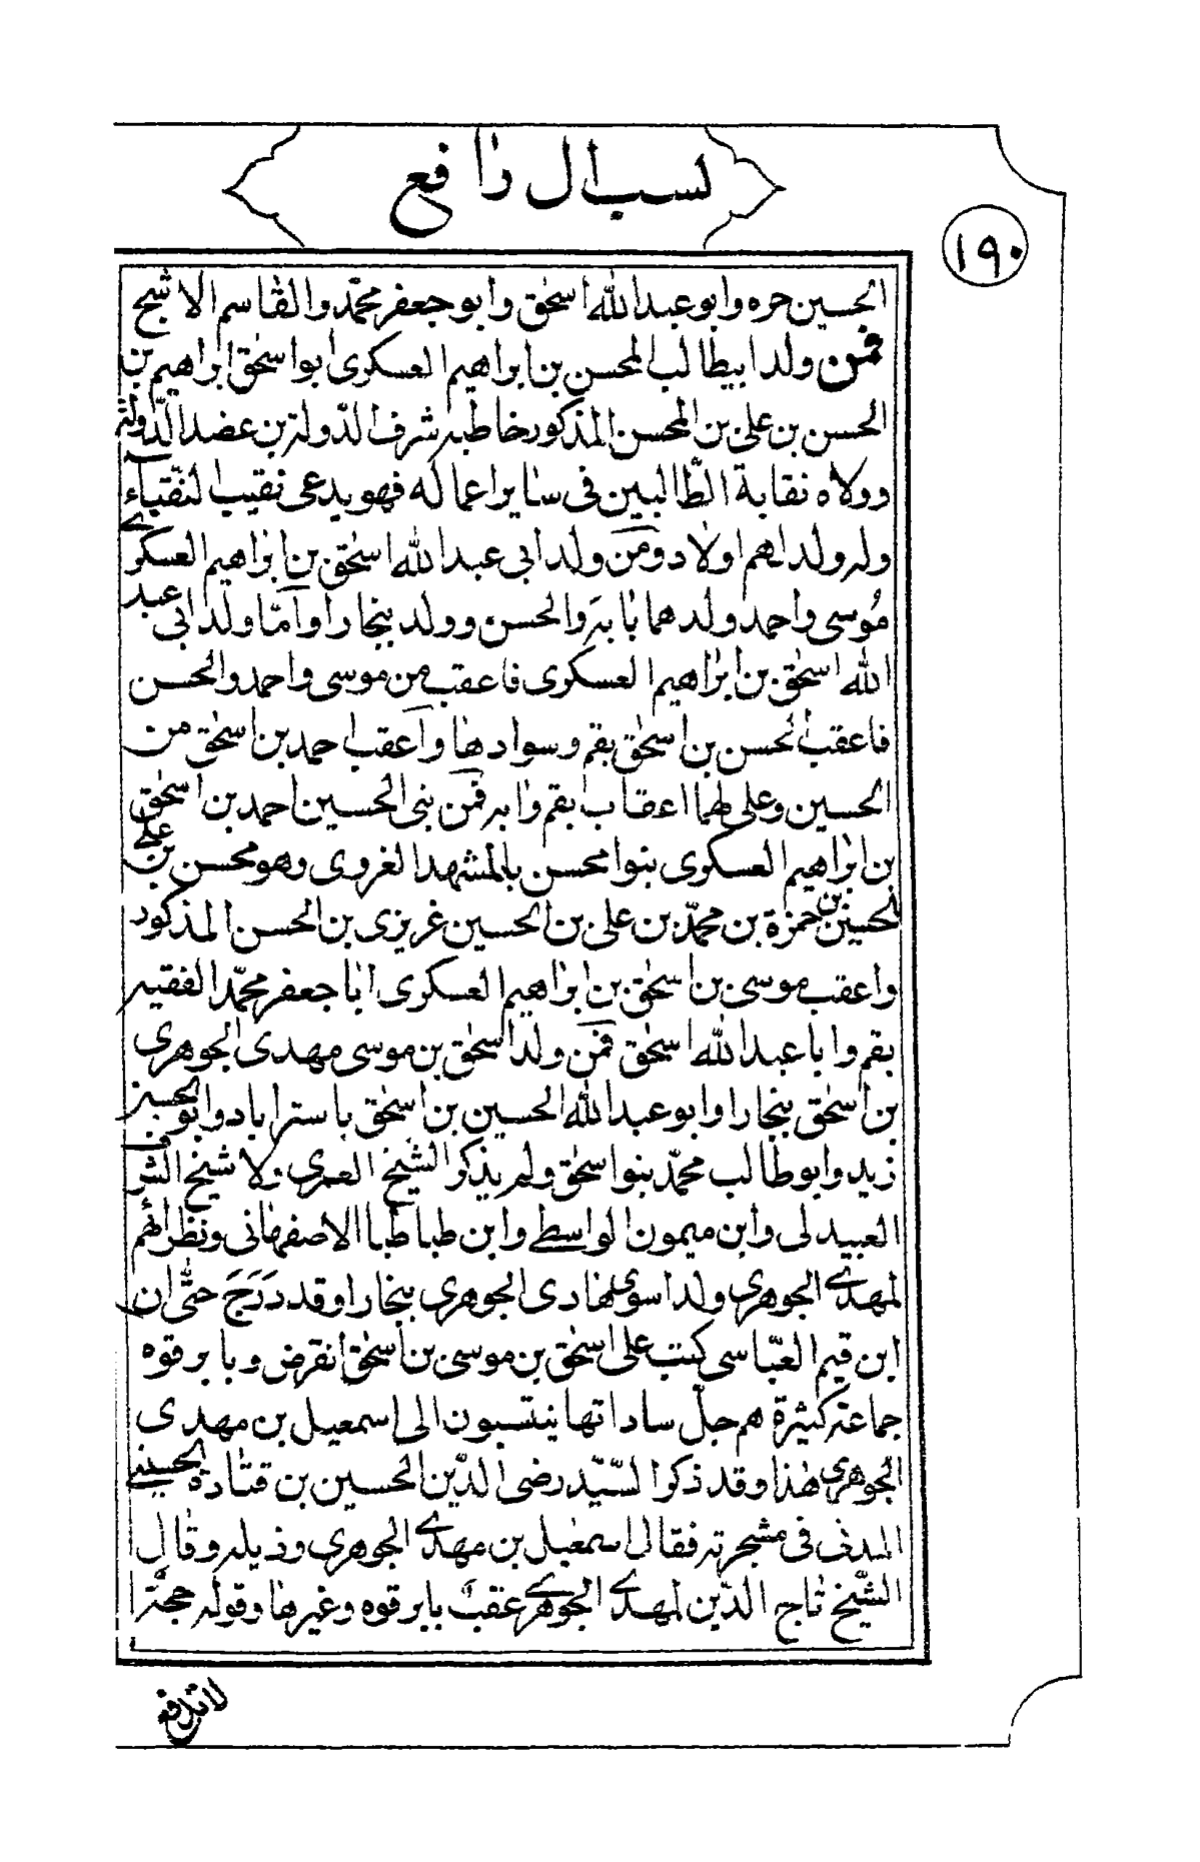 نسب ال رافع
١٩٠
الحسين حره وابو عبد الله اسحٰق وابو جعفر محمّد والقاسم الاشج
فمن ولد ابيطالب المحسن بن ابراهيم العسكرى ابو اسحٰق ابراهيم بن
الحسن بن على بن المحسن المذكور خاطبه شرف الدّولة بن عضد الدّولة
وولاه نقابة الطّالبيين فى ساير اعماله فهو يدعى نقيب النّقباء
وله ولد لهم اولاد ومن ولد ابى عبد الله اسحٰق بن ابراهيم العسكرى
مُوسى واحمد ولدهما بابه والحسن وولد بنجارا وامّا ولد ابى عبد
الله اسحٰق بن ابراهيم العسكرى فاعقب من موسى واحمد والحسن
فاعقب الحسن بن اسحٰق بقم وسوادها واعقب احمد بن اسحٰق من
الحسين وعلى لهما اعقاب بقم وابه فمن بنى الحسين احمد بن اسحٰق
بن ابراهيم العسكرى بنوا محسن بالمشهد الغروى وهو محسن بن على
الحسين بن حمزة بن محمّد بن على بن الحسين غريزى بن الحسن المذكور
واعقب موسى بن اسحٰق بن ابراهيم العسكرى ابا جعفر محمّد الفقيه
بقم وابا عبد الله اسحٰق فمن ولد اسحٰق بن موسى مهدى الجوهرى
بن اسحٰق بنجارا وابو عبد الله الحسين بن اسحٰق باستراباد وابو الحسين
زيد وابو طالب محمّد بنو اسحٰق ولم يذكر الشيخ العمرى ولا شيخ الشرف
العبيدلى وابن ميمون الواسطے وابن طباطبا الاصفهانى ونظرائهم
لمهدے الجوهرى ولدا سوى لهادى الجوهرى بنجارا وقد دَرَجَ حتّى ان
ابن قيم العبّاسى كتب على اسحٰق بن موسى بن اسحٰق انقرض وبابرقوه
جماعة كثيرة هم جلّ ساداتها ينتسبون الى اسمعيل بن مهدى
الجوهرى هٰذا وقد ذكر السّيّد رضى الدّين الحسين بن قتادة الحسينى
المدنى فى مشجرته فقال اسمعيل بن مهدے الجوهرى وذيله وقال
الشّيخ تاج الدّين لمهدے الجوهرے عقب بابرقوه وغيرها وقوله حجّة
لا تدفع